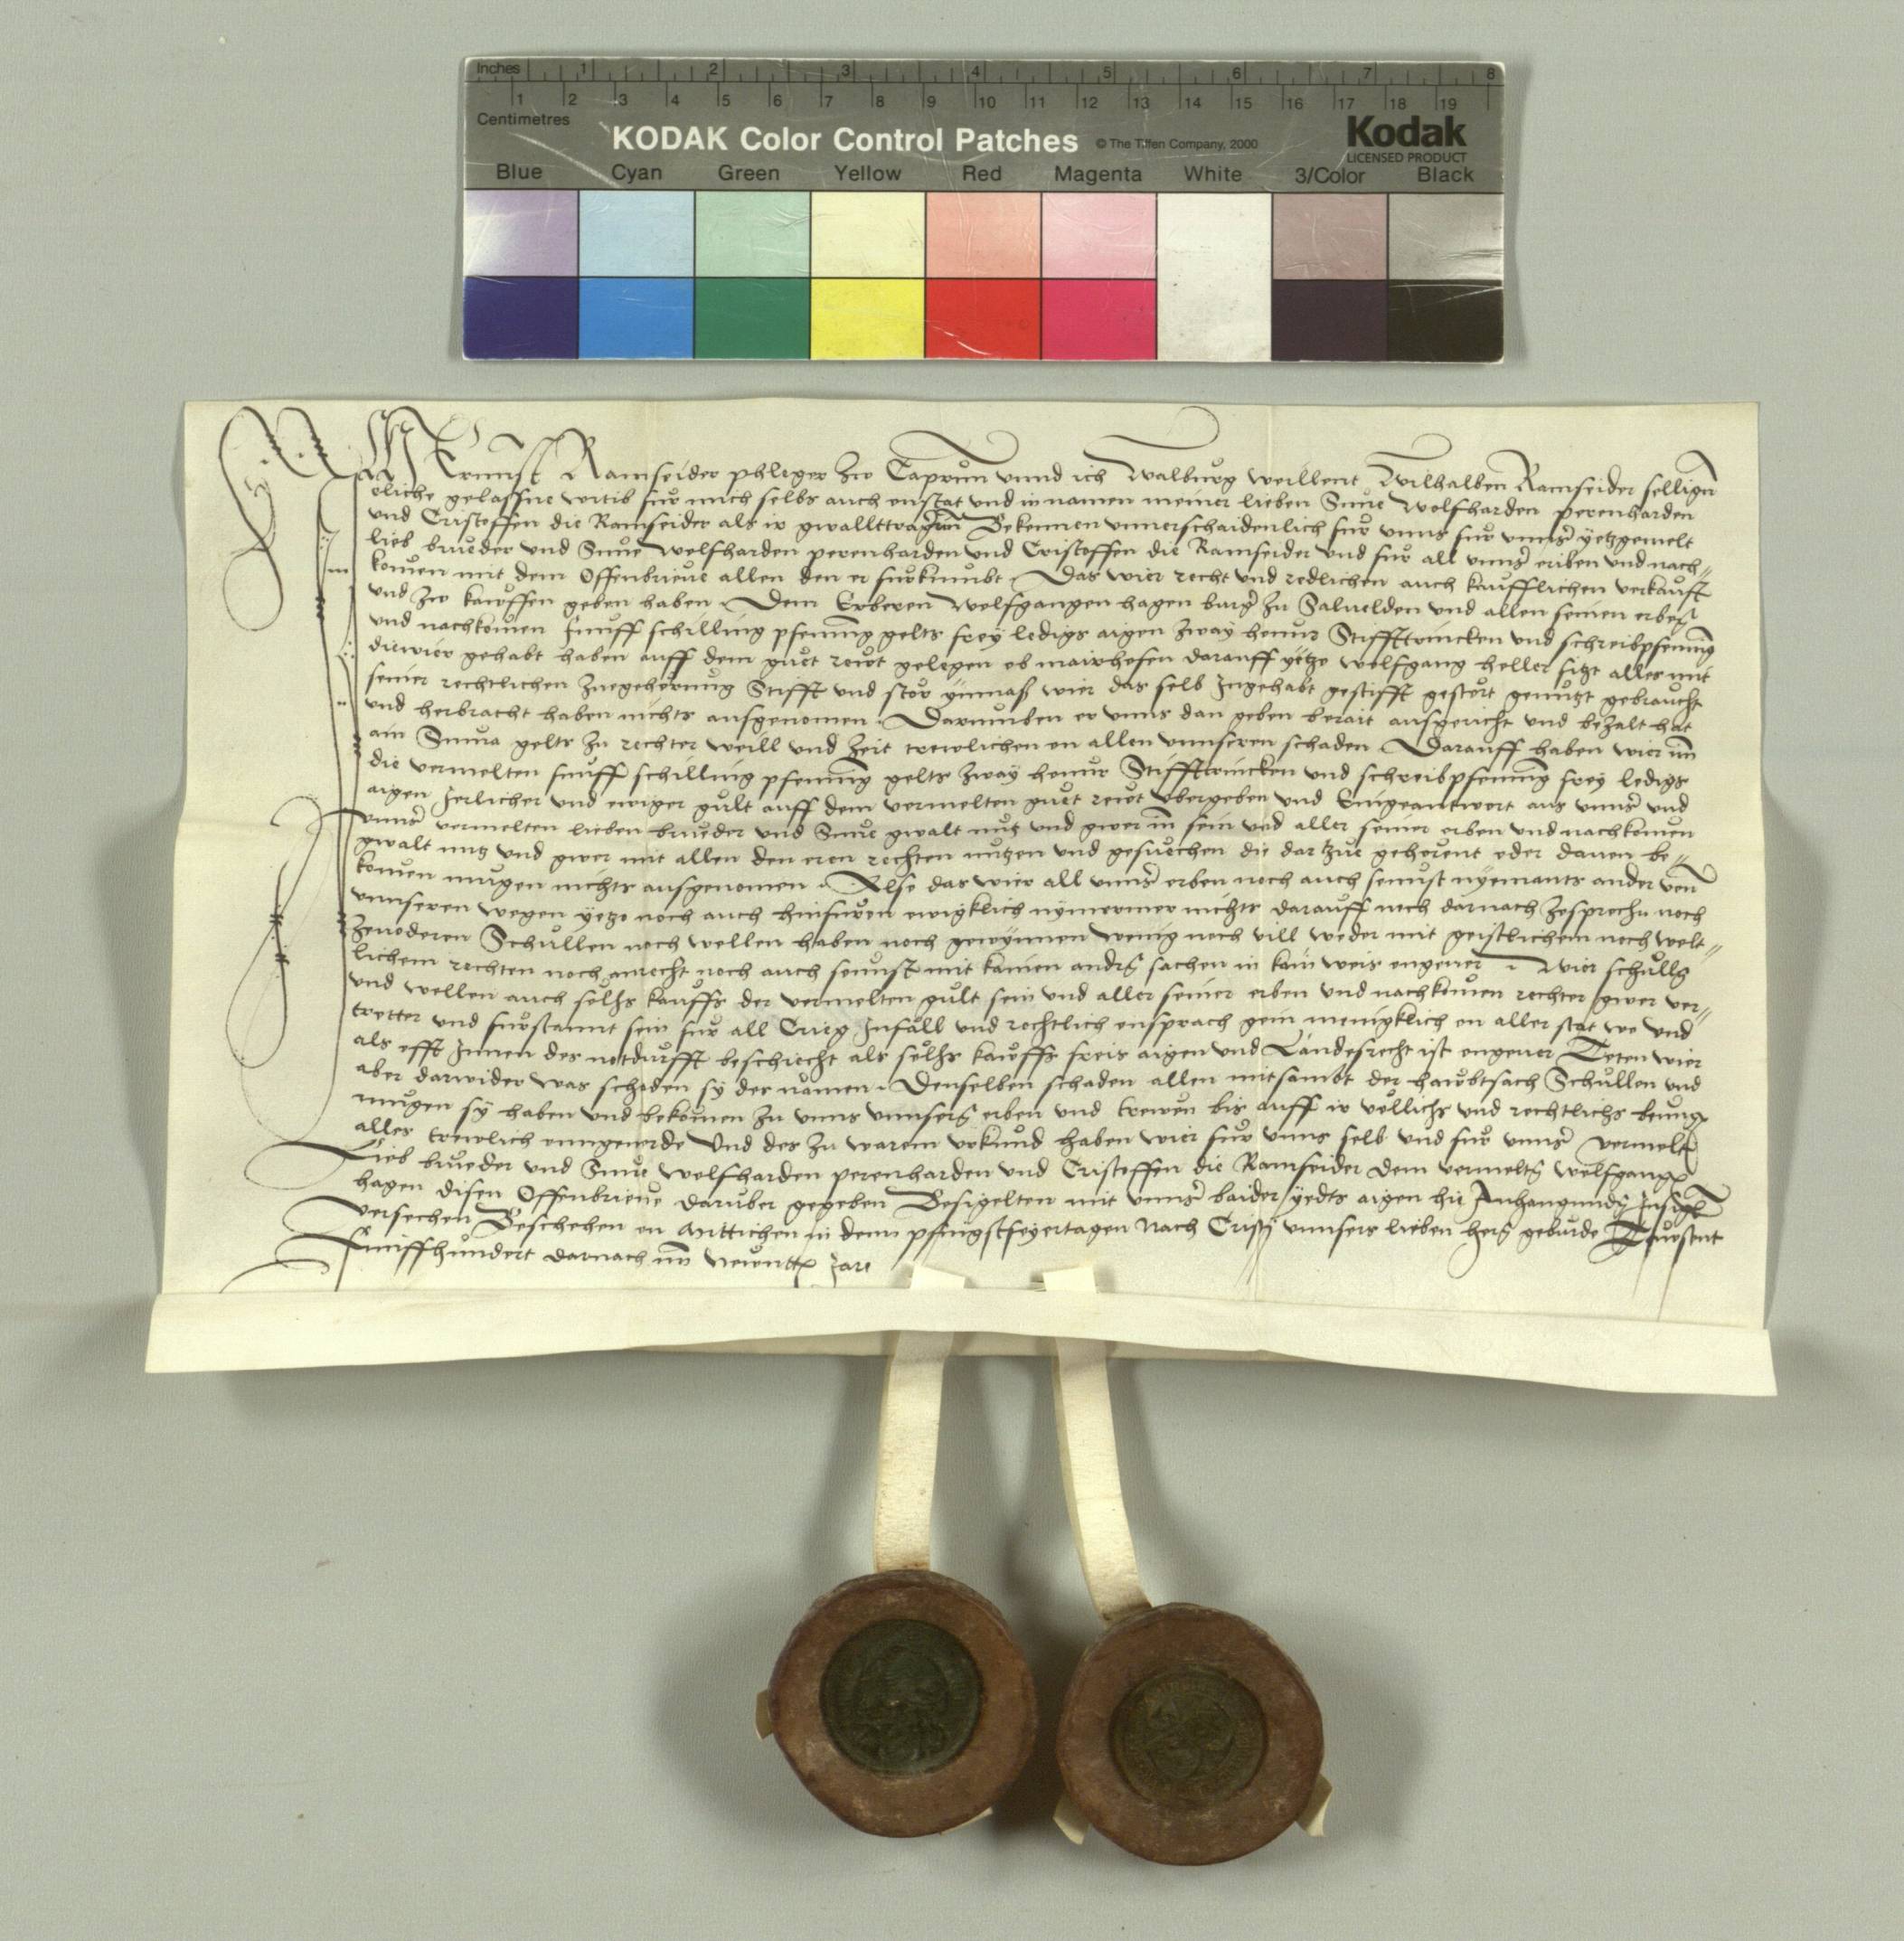 Inches 1 2 3 4 5 6 7 8
1 2 3 4 5 6 7 8 9 10 11 12 13 14 15 16 17 18 19
Centimetres
KODAK Color Control Patches © The Tiffen Company, 2000 Kodak
LICENSED PRODUCT
Blue Cyan Green Yellow Red Magenta White 3/Color Black
Ich Ernnst Ramseider phleger zw Caprun vnnd ich Walburg weillent Wilhalben Ramseider selligñ
eliche gelassne witib fur mich selbs auch anstat vnd in namen meiner lieben Sune Wolfharden perenharden
vnd Cristoffen die Ramseider als ir gwallttragerin Bekennen vnnerschaidenlich fur vnns fur vnnser yetzgemelt
lieb brueder vnd Sune Wolfharden perenharden vnd Cristoffen die Ramseider vnd fur all vnnser eriben vnd nach=
komen mit dem Offenbrieue allen den er furkumbt Das wier recht vnd redlichen auch kaufflichen verkaufft
vnd zw kawffen geben haben Dem Erberen Wolfgangen hagen burger zu Saluelden vnd allen seinen erben
vnd nachkomen funff schilling pfenning gelts frey ledigs aigen zway hennr Stiffttrincken vnd schreibpfening
die wier gehabt haben auff dem guet rewt gelegen ob mairhofen darauff yetzo wolfgang heller sitzt alles mit
seiner rechtlichen zuegehörung Stifft vnd stör ynmass wier das selb Inngehabt gestifft gestört genutzt gebraucht
vnd herbracht haben nichts ausgenomen Darumben er vnns dan geben berait ausgericht vnd bezalt hat
ain Suma gelts zu rechter weill vnd zeit trewlichen on allen vnnseren schaden Darauff haben wier im
die vermelten funff schilling pfenning gelts zway hennr Stiffttrincken vnd schreibpfenning frey ledigs
aigen Jerlicher vnd ewiger gult auff dem vermelten guet rewt vbergeben vnd Eingeantwort aus vnnser vnd
vnnser vermelten lieben brueder vnd Sune gwalt nutz vnd gwer in sein vnd aller seiner erben vnd nachkomen
gwalt nutz vnd gwer mit allen den eren rechten nutzen vnd gesuechen die dartzue gehörent oder dauon be=
komen mugen nichts ausgenomen Also das wier all vnnser erben noch auch sunnst nyemants ander von
vnnseren wegen yetzo noch auch hinfuron ewigklich nymermer nichts darauff noch darnach zesprechn noch
zeuoderen Schullen noch wellen haben noch gewynnen wenig noch vill weder mit geistlichem noch welt=
lichem rechten noch anrecht noch auch sunnst mit kainen andern sachen in kain weis ongeuer Wier schullen
vnd wellen auch sölhs kauffs der vermelten gult sein vnd aller seiner erben vnd nachkomen rechter gwer ver=
tretter vnd furstannt sein fur all Crieg Infäll vnd rechtlich ansprach gein menigklich an aller stat wo vnd
als offt Innen des notdurfft beschiecht als sölhs kawffs freis aigen vnd Landesrecht ist ongeuer Teten wier
aber darwider was schaden sy des namen Denselben schaden allen mitsambt der hawbtsach Schullen vnd
mugen sy haben vnd bekomen zu vnns vnnsern erben vnd trewen bis auff ir völlichs vnd rechtlichs benugen
alles trewlich onngeuerde Vnd des zu warem vrkund haben wier fur vnns selb vnd fur vnnser vermelte
Lieb brueder vnd Sune wolfharden perenharden vnd Cristoffen die Ramseider dem vermelten wolfgangen
hagen disen Offenbrieue daruber gegeben Besigelten mit vnnser baider yedts aigen hie Anhangunden Insigl
versechen Beschehen an Mittichen in denn pfingstfeyertagen Nach Cristi vnnsers lieben hern geburde Tawsent
Funffhundert darnach im newntten Jare